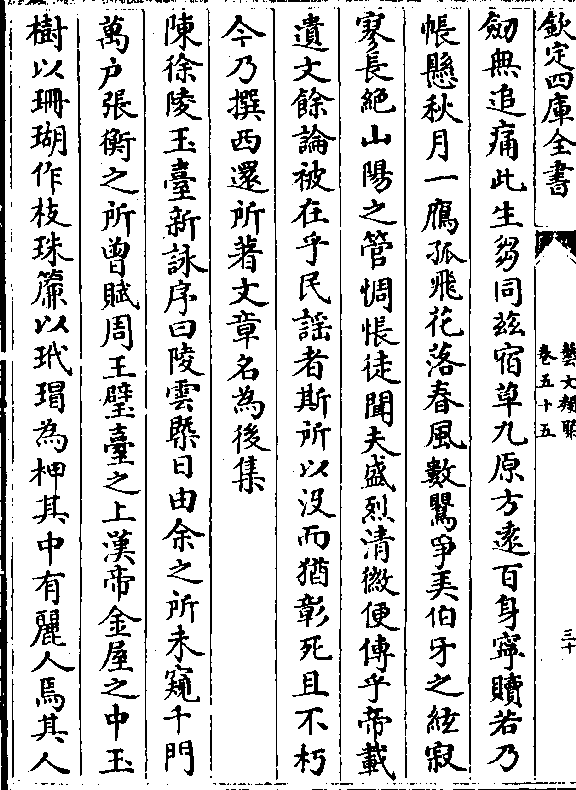 欽定四庫全書
藝文類聚
卷五十五
三十
劒無追痛此生芻同茲宿草九原方遠百身寧贖若乃
帳懸秋月一鴈孤飛花落春風數鶯爭美伯牙之絃寂
寥長絶山陽之管惆悵徒聞夫盛烈清徽便傳乎帝載
遺文餘論被在乎民謡者斯所以没而猶彰死且不朽
今乃撰西還所著文章名為後集
陳徐陵玉臺新詠序曰陵雲槩日由余之所未窺千門
萬户張衡之所曾賦周王璧臺之上漢帝金屋之中玉
樹以珊瑚作枝珠簾以玳瑁為柙其中有麗人焉其人